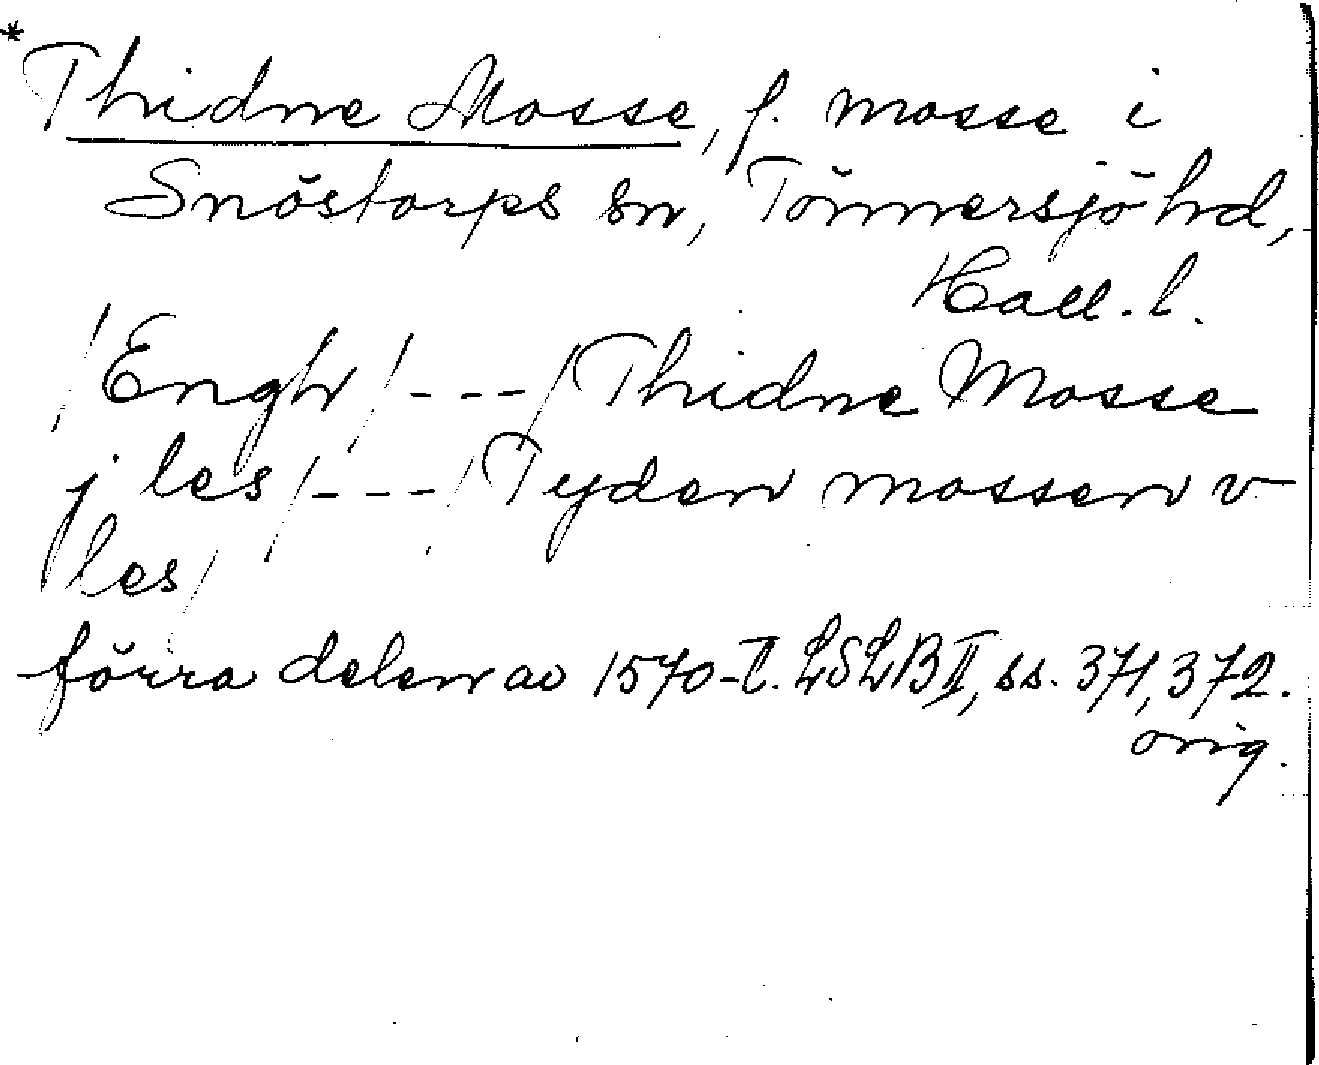 * Thidne Mosse, f. mosse i
Snöstorps sn, Tönnersjö hd,
Hall. l.
/Engh/---/Thidne Mosse
j les/---/Tyden mossen v
les/
förra delen av 1570-t. LSLB II, ss. 371, 372.
orig.